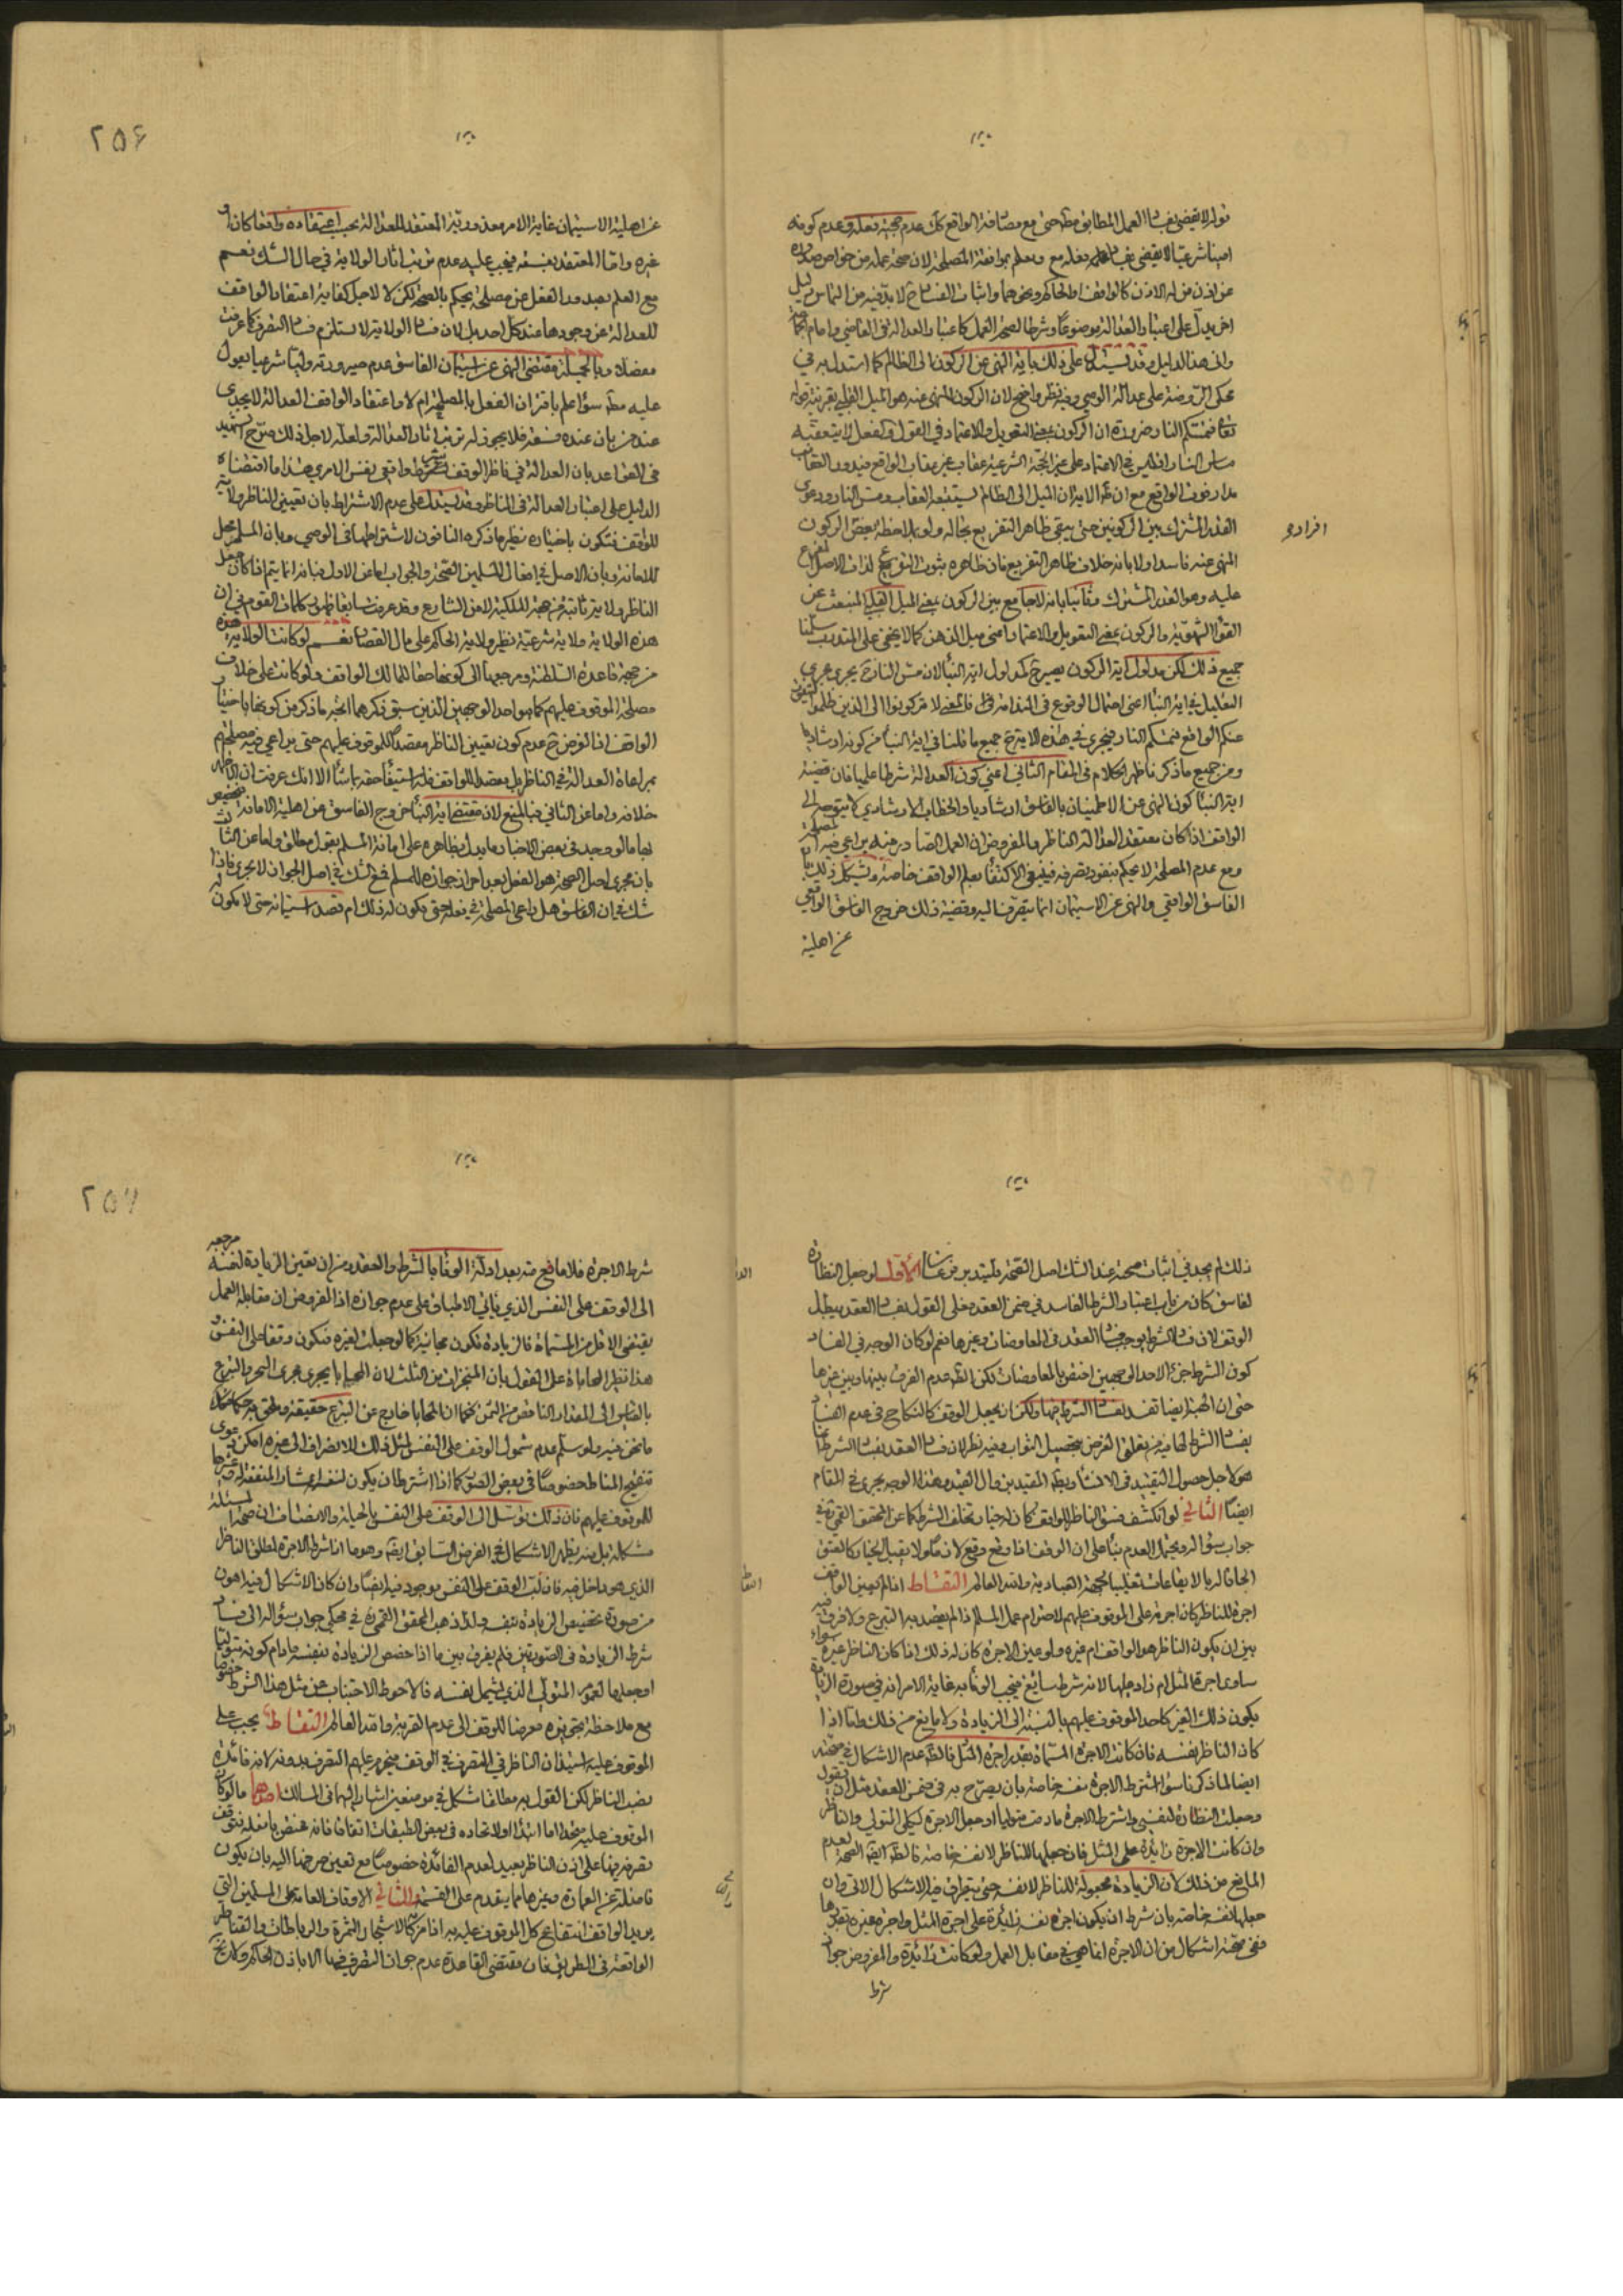 قوله لا يقضي بفساد العمل المطابق مع مصادفة الواقع كان عدم حجية فعله وعدم كونه
امينا شرعيا لا يقضي بفساد فعله مع موافقة المصلحة لان صحة عمله من خواص صدوره
عن اذن من له الاذن كالواقف او الحاكم ونحوهما واثبات الفساد ح لا بد فيه من التماس دليل
اخر يدل على اعتبار العدالة موضوعا وشرطا لصحة العمل كاعتبار العدالة في القاضي وامام الجماعة
واني هذا الدليل وقد يستدل على ذلك باية النهي عن الركون الى الظالم كما استدل به في
محكي الروضة على عدالة الوصي وفيه نظر واضح لان الركون المنهي عنه هو الميل القلبي بقرينة قوله
تعالى فتمسكم النار ضرورة ان الركون بمعنى التعويل والاعتماد في القول والفعل لا يتعقبه
مدار فوت الواقع مع ان ظاهر الاية ان الميل الى الظالم يستتبعه العقاب ومس النار ودعوى
القدر المشترك بين الركونين حتى يبقى ظاهر التفريع بحاله ولو بملاحظة بعض
افراده
الركون
المنهي عنه فاسد اولا بانه خلاف ظاهر التفريع فان ظاهره ثبوت
عليه وهو القدر المشترك وثانيا بانه لا جامع بين الركون بمعنى الميل القلبي المنبعث عن
القوة الشهوية والركون بمعنى التعويل والاعتماد اعني ميل الذهن كما لا يخفى على المتدبر سلمنا
جميع ذلك لكن مدلول اية الركون يصير ح كمدلول اية النبأ لان مس النار ح يجري مجرى
التعليل في اية النبأ اعني احتمال الوقوع في الندامة فالمعنى لا تركنوا الى الذين ظلموا
عنكم الواقع فتمسكم النار فيجري في هذه الاية ح جميع ما قلنا في اية النبأ من كونه ارشاديا
ومن جميع ما ذكر ظهر الكلام في المقام الثاني اعني كون العدالة شرطا علميا فان قضية
اية النبأ كون النهي عن الاطمينان بالفاسق ارشاديا والخطاب الارشادي كما يتوجه الى
الواقف اذا كان معتقد العدالة الناظر والمفروض ان العمل الصادر منه يراعي فيه المصلحة
ومع عدم المصلحة لا يحكم بنفوذ تصرفه فينبغي الاكتفاء بعلم الواقف خاصة ويشكل ذلك بان
الفاسق الواقعي والنهي عن الاستيمان انما يتصرف اليه وقضية ذلك خروج الفاسق الواقعي
عن اهلية
٢٥۶
عن اهلية الاستيمان غاية الامر معذورية المعتقد للعدالة بحسب اعتقاده واقفا كان او
غيره واما المعتقد بفسقه فيجب عليه عدم ترتيب اثار الولاية في حال الشك نعم
مع العلم بصدور الفعل عن مصلحة يحكم بالصحة لكن لا لاجل كفاية اعتقاد الواقف
للعدالة عن وجودها عند كل احد بل لان فساد الولاية لا يستلزم فساد التصرف كما عرفت
مفصلا وبالجملة مقتضى النهي عن استيمان الفاسق عدم صيرورته وليا شرعيا يعول
عليه مط سواء علم باقتران الفعل بالمصلحة ام لا واعتقاد الواقف العدالة لا يجدي
عند من بان عنده فسقه فلا يجوز له ترتيب اثار العدالة ولعله لاجل ذلك صرح الشهيد
في القواعد بان العدالة في ناظر الوقف شرط واقعي بنفس الامري هذا ما اقتضاه
الدليل على اعتبار العدالة في الناظر وقد يستدل على عدم الاشتراط بان تعيين الناظر ولاية
للوقف فتكون باختياره نظير ما ذكره النافون لاشتراطها في الوصي وبان المسلم محل
للامانة وبان الاصل في افعال المسلمين الصحة والجواب اما عن الاول فبانه انما يتم اذا كان جعل
الناظر ولاية ثابتة من جهة الملكية لا من الشارع وقد عرفت سابقا ظهور كلمات القوم في ان
هذه الولاية ولاية شرعية نظير ولاية الحاكم على مال القصار نعم لو كانت الولاية هذه
من جهة قاعدة السلطنة ومرجعها الى كونها حقا للمالك الواقف ولو كانت على خلاف
مصلحة الموقوف عليهم كما هو احد الوجهين الذين سبق ذكرهما اتجه ما ذكر من كونها باختيار
الواقف اذ المفروض ح عدم كون تعيين الناظر مقصدا للموقوف عليهم حتى يراعي فيه مصلحتهم
بمراعاة العدالة في الناظر بل مقصد للواقف فله استيفاء حقه بما شاء الا انك عرفت ان الظاهر
خلافه واما عن الثاني فبالمنع لان مقتضى اية النبأ خروج الفاسق عن اهلية الامانة فيخصص
بها ما لو وجد في بعض الاخبار ما يدل بظاهره على امانة المسلم بقول مطلق واما عن الثالث
بان مجرى اصل الصحة هو الفعل بعد احراز جوازه للمسلم فمع الشك في اصل الجواز لا يجري فاذا
شك في ان الفاسق هل راعى المصلحة في فعله حتى يكون له ذلك ام قصد استيمانه حتى لا يكون
ذلك لم يجد في اثبات صحته عند الشك اصل الصحة فليتدبر فرعان الاول لو جعل النظارة
لفاسق كان من باب اعتبار الشرط الفاسد في ضمن العقد فعلى القول بفساد العقد يبطل
الوقف لان فساد الشرط يوجب فساد العقد في المعاوضات وغيرها نعم لو كان الوجه في الفساد
كون الشرط جزء لاحد العوضين اختص بالمعاوضات لكن الظ عدم الفرق بينها وبين غيرها
حتى ان الهبة ايضا تفسد بفساد الشرط فيها ولكن ان يجعل الوقف كالنكاح في عدم الفساد
بفساد الشرط لما فيه من تعلق الغرض بتحصيل الثواب وفيه نظر لان فساد العقد بفساد الشرط انما
هو لاجل حصول التقييد في الانشاء بعد المقيد بزوال القيد وهذا الوجه يجري في المقام
ايضا الثاني لو انكشف فسق الناظر للواقف كان له خيار تخلف الشرط كما عن المحقق القمي في
جواب سؤال ويحتمل العدم بناء على ان الوقف اذا وقع وقع لازما ولا يقبل الخيار كالعتق
الحاقا له بالايقاعات تغليبا لجهة العبادية والله العالم التقاط اذا لم يعين الواقف
اجرة للناظر كان اجرته على الموقوف عليهم لاحترام عمل المسلم اذا لم يقصد به التبرع ولا فرق فيه
بين ان يكون الناظر هو الواقف ام غيره ولو عين الاجرة كان له ذلك اذا كان الناظر غيره سواء
ساوى اجرة المثل ام زاد عليها لانه شرط سائغ فيجب الوفاء به غاية الامر انه في صورة الزيادة
يكون ذلك الغير كاحد الموقوف عليهم بالنسبة الى الزيادة ولا مانع من ذلك واما اذا
كان الناظر نفسه فان كانت الاجرة المسماة بقدر اجرة المثل فالظ عدم الاشكال في صحته
ايضا لما ذكرنا سواء اشترط الاجرة لنفسه خاصة بان يصرح به في ضمن العقد مثل ان يقول
وجعلت النظارة لنفسي واشترط الاجرة ما دمت متوليا او جعل الاجرة لكلي المتولي والناظر
وان كانت الاجرة زائدة على المثل فان جعلها للناظر لا نفسه خاصة فالظ ايضا الصحة لعدم
المانع من ذلك لان الزيادة مجعولة للناظر لا لنفسه حتى يتطرق فيه الاشكال الاتي وان
جعلها لنفسه خاصة بان شرط ان يكون اجرة نفسه زائدة على اجرة المثل واجرة غيره بقدرها
ففي صحته اشكال من ان الاجرة انما هي في مقابل العمل ولو كانت زائدة والمفروض جواز
شرط
٢٥٧
شرط الاجرة فلا مانع منه بعد ادلة الوفاء بالشرط والعقود ومن ان تعيين الزيادة لنفسه مرجعه
الى الوقف على النفس الذي ياتي الاطباق على عدم جوازه اذ المفروض ان مقابلة العمل
يقتضي الاقل من المسماة فالزيادة تكون مجانية كما لو جعلت لغيره فتكون وقفا على النفس
هذا نظير المحاباة على القول بان المنجزات من الثلث لان المحاباة يجري مجرى التبرع
بالقياس الى المقدار الناقص من الثمن فكما ان المحاباة خارج عن التبرع حقيقة وملحق به حكما كذلك
ما نحن فيه ولو سلم عدم شمول الوقف على النفس لمثل ذلك لانصراف الى غيره امكن دعوى
تنقيح المناط خصوصا في بعض الصور كما اذا اشترط ان يكون لنفسه اعشار المنفعة وعشرها
للموقوف عليهم فان ذلك توسل الى الوقف على النفس بالحيلة والانصاف ان هذه المسئلة
مشكلة بل منه يظهر الاشكال في الفرض السابق ايضا وهو ما اذا شرط الاجرة لمطلق الناظر
الذي هو داخل فيه فان لب الوقف على النفس موجود فيه ايضا وان كان الاشكال فيه اهون
من صورة تخصيص الزيادة بنفسه ولذا ذهب المحقق القمي في محكي جواب سؤاله الى فساد
شرط الزيادة في الصورتين فلم يفرق بين ما اذا خصص الزيادة بنفسه ما دام كونه متوليا
او جعلها لعموم المتولي الذي يشمل نفسه فالاحوط الاجتناب عن مثل هذا الشرط خصوصا
مع ملاحظة تجويزه معرضا للوقف الى عدم القربة والله العالم التقاط يجب على
الموقوف عليه استيذان الناظر في التصرف في الوقف فيحرم عليهم التصرف بدونه لانه فائدة
نصب الناظر لكن القول به مطلقا مشكل في موضعين اشار اليهما في المسالك احدهما ما لو كان
الموقوف عليه متحدا اما ابتداء او لاتحاده في بعض الطبقات اتفاقا فانه مختص بالغلة فتوقف
تصرفه فيها على اذن الناظر بعيد لعدم الفائدة خصوصا مع تعيين صرفها اليه بان يكون
فاضلة عن العمارة وغيرها مما يقدم على القسمة والثاني الاوقاف العامة على المسلمين التي
يريد الواقف انتفاع كل الموقوف عليه به اذا مر كالاشجار المثمرة والرباطات والقناطر
الواقعة في الطريق فان مقتضى القاعدة عدم جواز التصرف فيها الا باذن الحاكم ولا ريب